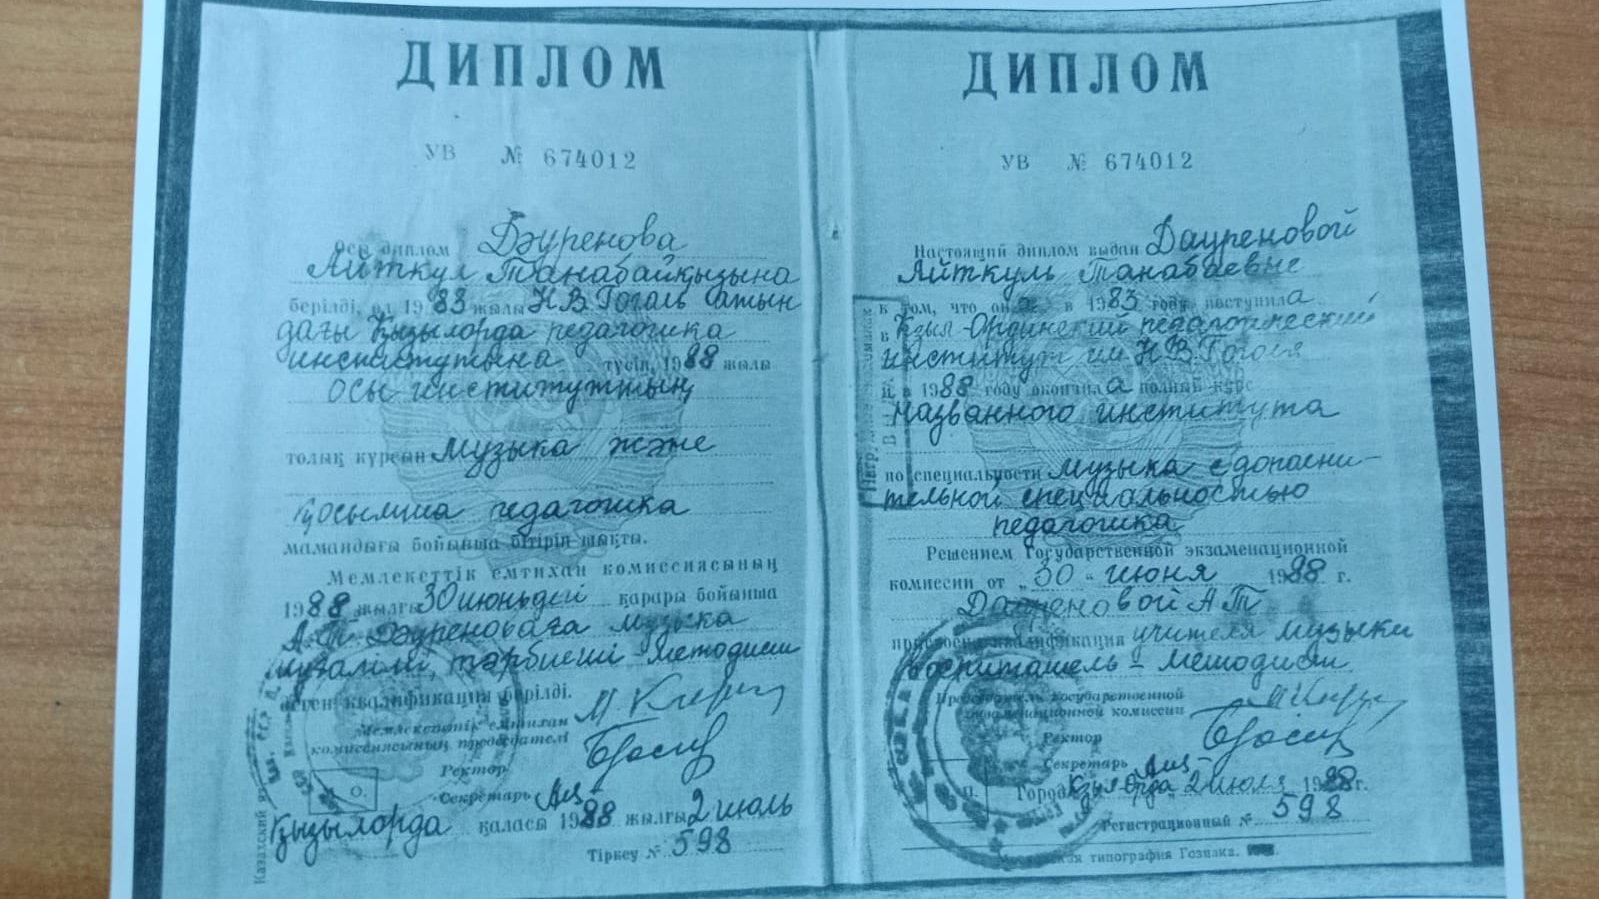 ДИПЛОМ
УВ № 674012
Осы диплом Дәуренова
Айткул Танабайқызына
берілді, ол 1983 жылы Н.В.Гоголь атын
дағы Қызылорда педагогика
институтына түсіп, 1988 жылы
осы институттың
толық курсын музыка және
қосымша педагогика
мамандығы бойынша бітіріп шықты.
Мемлекеттік емтихан комиссиясының
1988 жылғы 30 июньдегі қарары бойынша
А.Т. Дәуреноваға музыка
мұғалімі, тәрбиеші методист
деген квалификация берілді.
Мемлекеттік емтихан
комиссиясының председателі
Ректор
Секретарь
М. О.
Қызылорда қаласы 1988 жылғы 2 июль
Тіркеу № 598
ДИПЛОМ
УВ № 674012
Настоящий диплом выдан Дауреновой
Айткуль Танабаевне
в том, что она в 1983 году поступила
в Кзыл-Ординский педагогический
институт им. Н.В.Гоголя
и в 1988 году окончила полный курс
названного института
по специальности музыка с дополни-
тельной специальностью
педагогика
Решением Государственной экзаменационной
комиссии от „30" июня 1988 г.
Дауреновой А.Т
присвоена квалификация учителя музыки
воспитатель - методист
Председатель Государственной
экзаменационной комиссии
Ректор
Секретарь
Город Кзыл-Орда „2" июля 1988 г.
Регистрационный № 598
Московская типография Гознака.